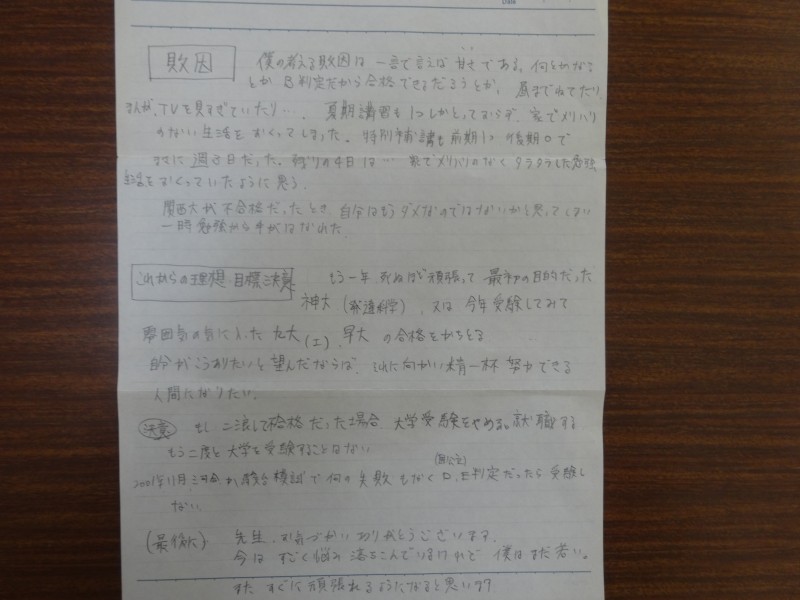 敗因
僕の考える敗因は一言で言えば甘さである。何とかなる
とか B判定だから合格できるだろうとか、昼まで寝てたり
まんが、TVを見すぎていたり…。夏期講習も1つしかとっておらず、家でメリハリ
のない生活をおくってしまった。特別補講も前期1つ後期0で
週3日だった。残りの4日は… 家でメリハリのなくダラダラした勉強
生活をおくっていたように思う。
関西大が不合格だったとき、自分はもうダメなのではないかと思ってしまい
一時勉強から手がはなれた。
これからの理想 目標 決意
もう一年 死ぬほど頑張って 最初の目的だった
神大(発達科学)、又は 今年受験してみて
雰囲気の気に入った 九大(工)、早大 の合格をかちとる
自分がこうありたいと望んだならば、それに向かい精一杯 努力できる
人間になりたい。
決意 もし 二浪して不合格だった場合、大学受験をやめる。就職する
もう二度と大学を受験することはない
(国公立)
2001年11月 駿台模試で何の失敗もなくD、E判定だったら受験し
ない
(最後に) 先生、お気づかいありがとうございます。
今は すごく悩み 落ちこんでいるけれど 僕はまだ若い。
また すぐに頑張れるようになると思います